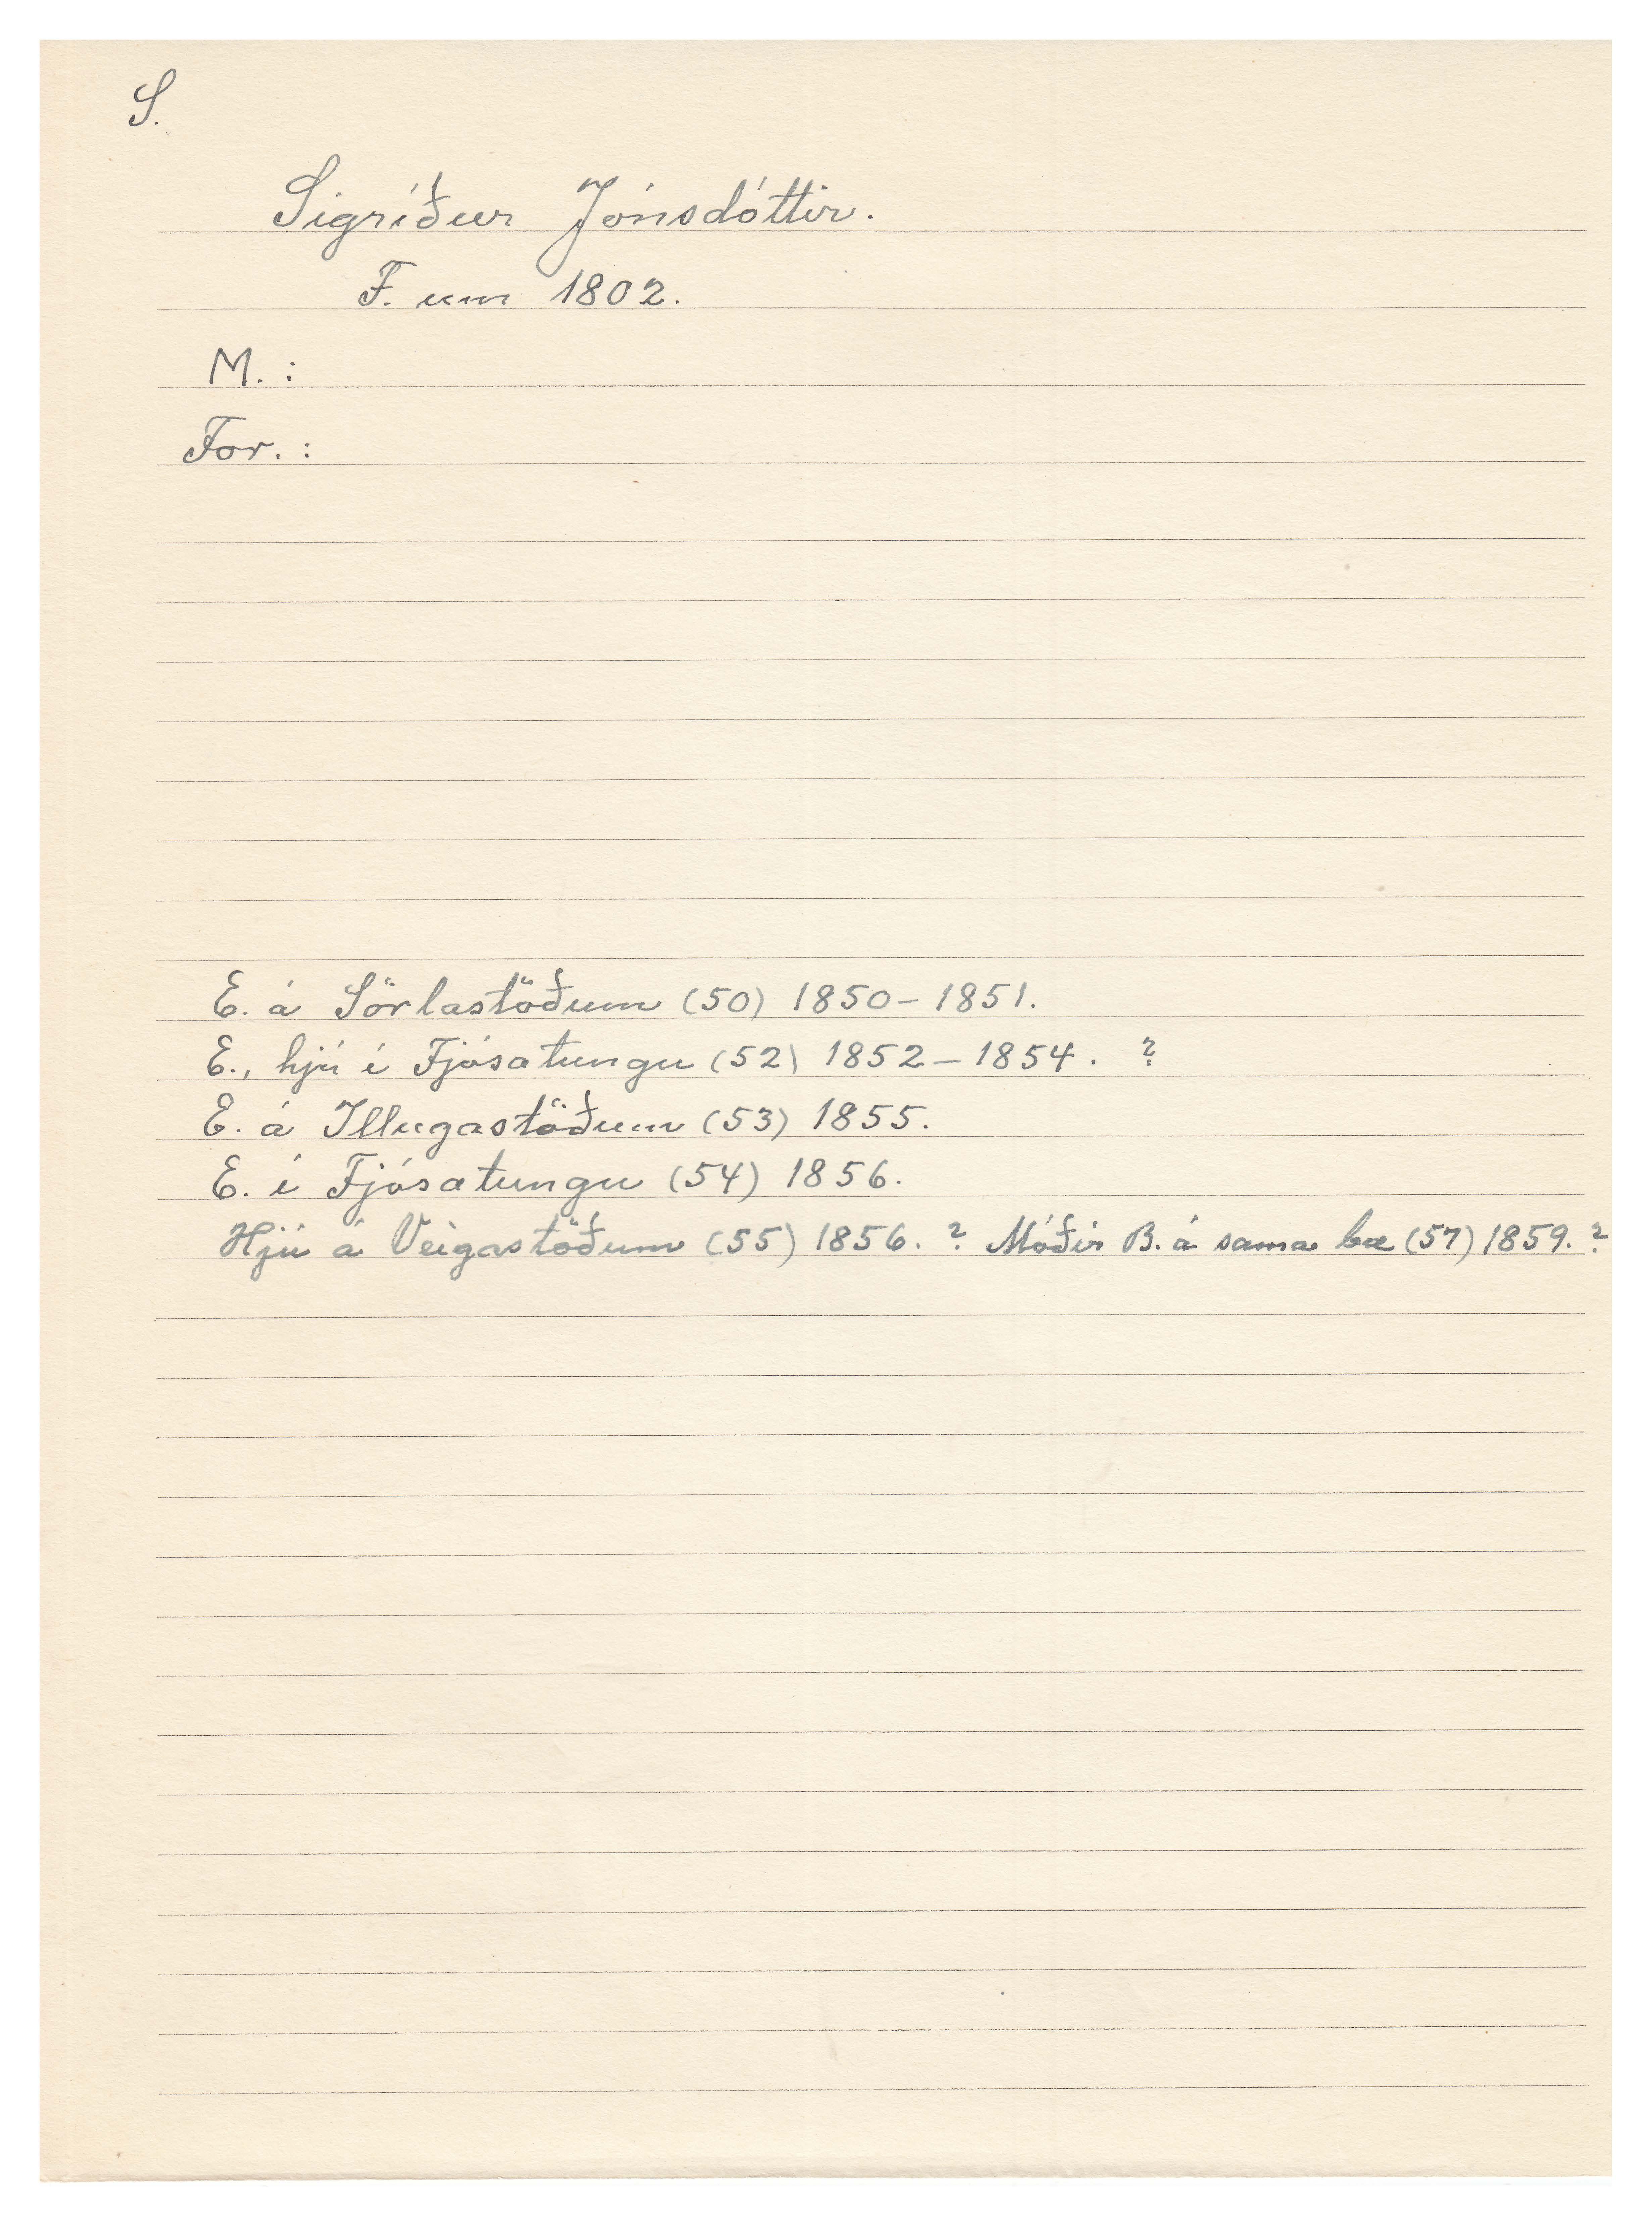 S.
Sigríður Jónsdóttir.
F. um 1802.
M. :
For. :
E. á Sörlastöðum (50) 1850-1851.
E., hjú í Fjósatungu (52) 1852-1854. ?
E. á Illugastöðum (53) 1855.
E. í Fjósatungu (54) 1856.
Hjú á Veigastöðum (55) 1856. ? Móðir B. á sama bæ (57) 1859. ?